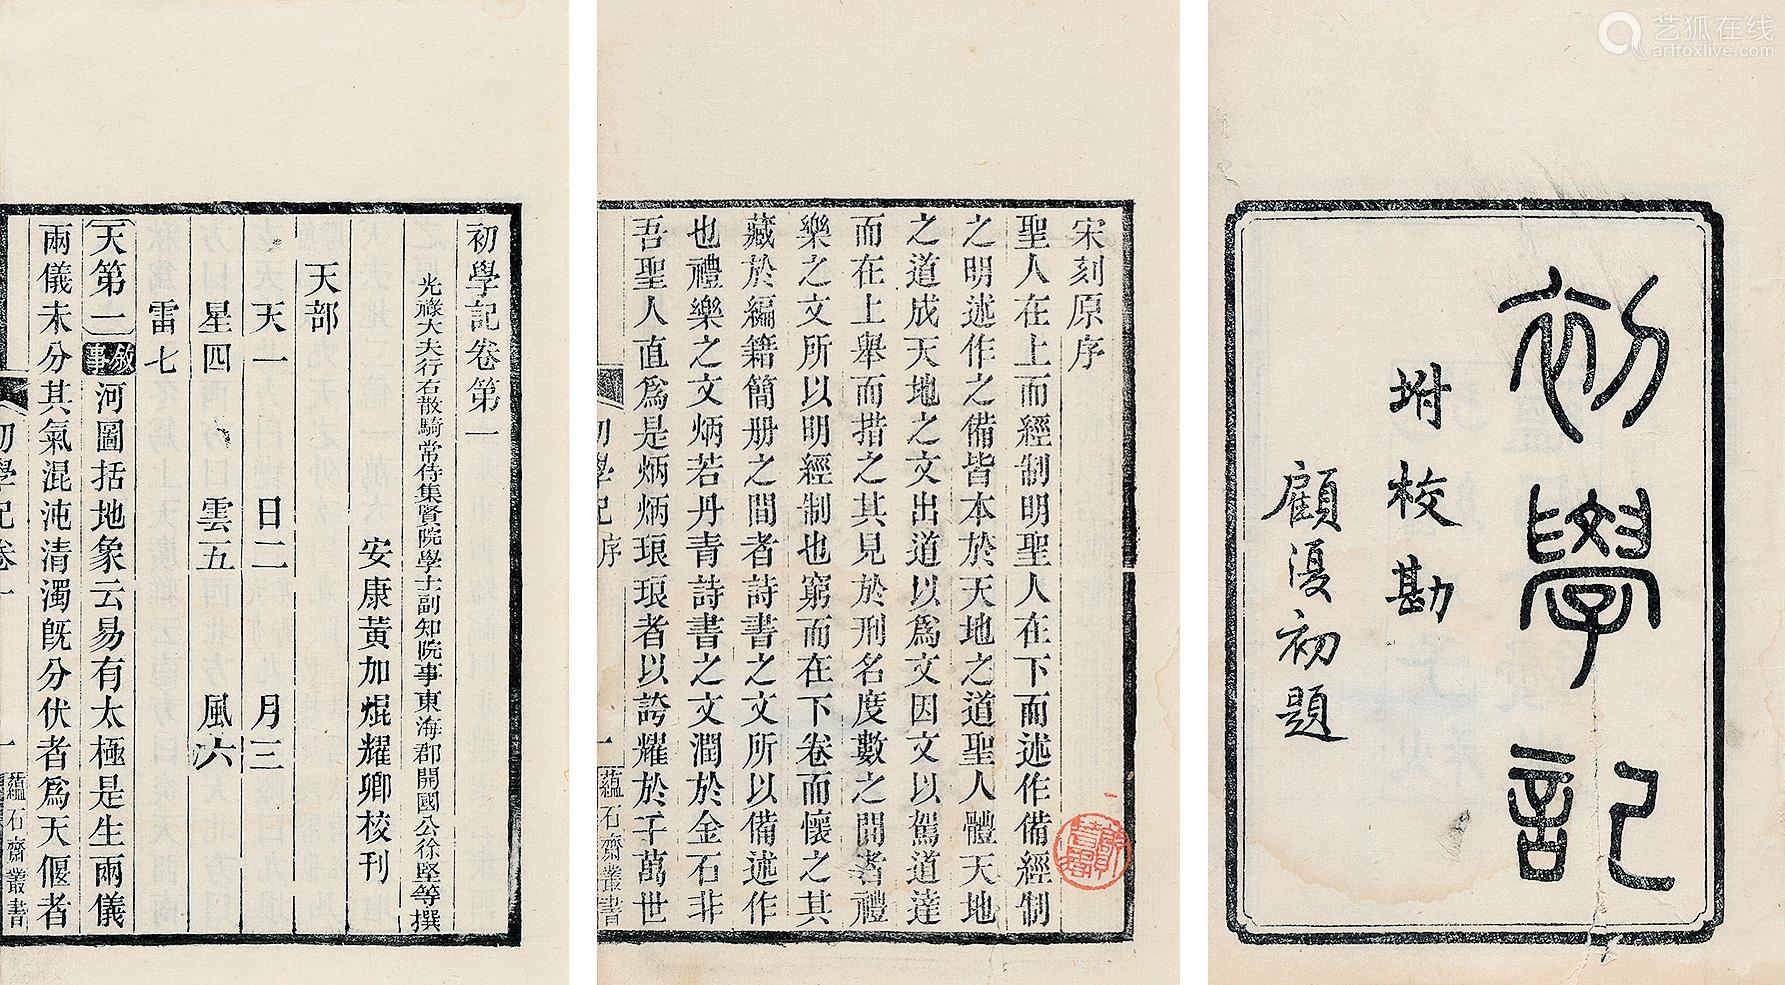 初學記
坿校勘
顧澐初題
宋刻原序
聖人在上而經制明聖人在下而述作備經制
之明述作之備皆本於天地之道聖人體天地
之道成天地之文出道以爲文因文以駕道達
而在上舉而措之其見於刑名度數之間者禮
樂之文所以明經制也窮而在下卷而懷之其
藏於編籍簡册之間者詩書之文所以備述作
也禮樂之文炳若丹青詩書之文潤於金石非
吾聖人直爲是炳炳琅琅者以誇耀於千萬世
初學記序
一
蘊石齋叢書
初學記卷第一
光祿大夫行右散騎常侍集賢院學士副知院事東海郡開國公徐堅等撰
安康黃加焜耀卿校刊
天部
天一 日二 月三
星四 雲五 風六
雷七
天第一 敘事 河圖括地象云易有太極是生兩儀
兩儀未分其氣混沌清濁旣分伏者爲天偃者
初學記卷一
一
蘊石齋叢書
艺狐在线
artfoxlive.com